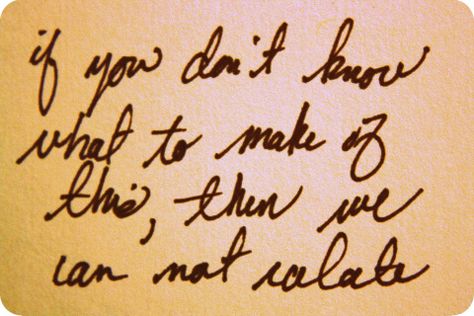 if you don't know
what to make of
this, then we
can not relate